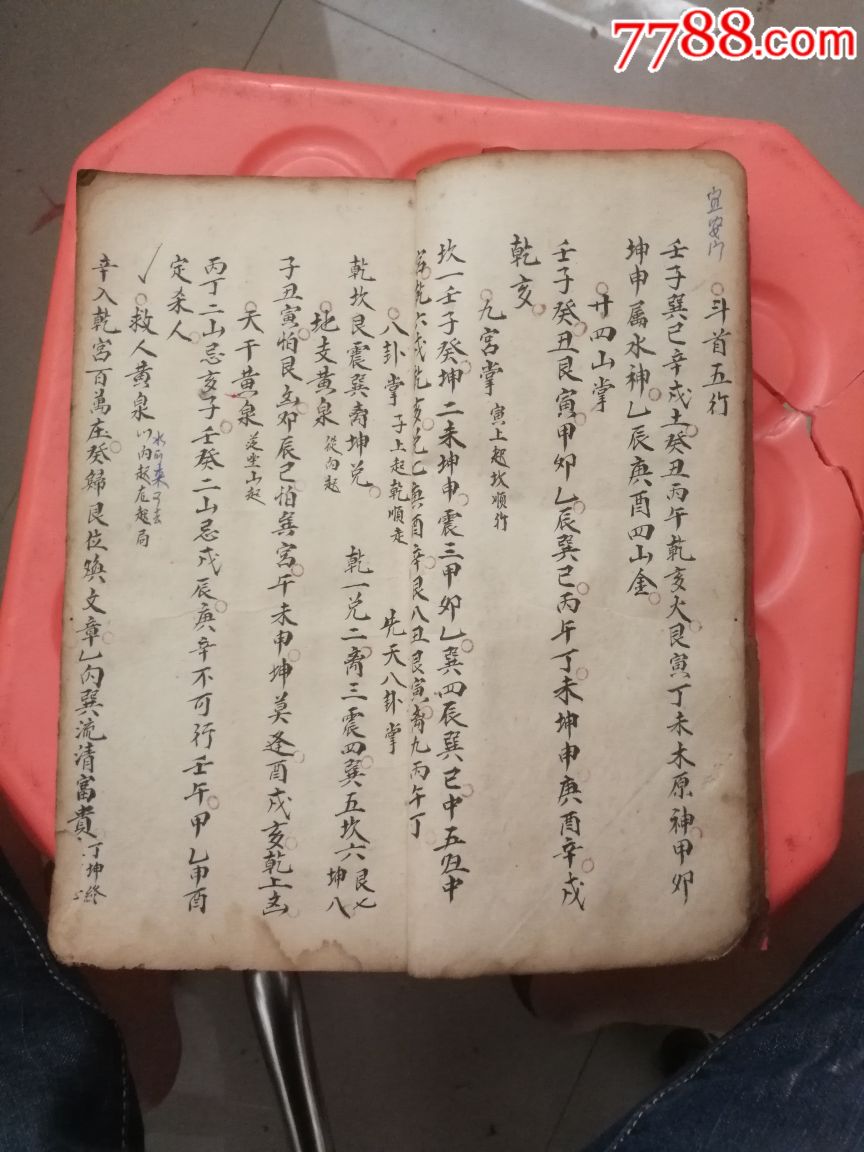 7788.com
斗首五行
壬子巽巳辛戌土癸丑丙午乾亥火艮寅丁未木原神甲卯
坤申属水神乙辰庚酉四山金
廿四山掌
壬子癸丑艮寅甲卯乙辰巽巳丙午丁未坤申庚酉辛戌
乾亥
九宮掌 寅上起坎順行
坎一壬子癸坤二未坤申震三甲卯乙巽四辰巽巳中五中
乾六戌乾亥兑七庚酉辛艮八丑艮寅离九丙午丁
八卦掌 子上起乾順走 先天八卦掌
乾坎艮震巽离坤兑 乾一兑二离三震四巽五坎六艮七坤八
地支黄泉 從向起
子丑寅怕艮宫卯辰巳怕巽宮午未申坤莫逢酉戌亥乾上凶
天干黄泉 從坐山起
丙丁二山忌亥子壬癸二山忌戌辰庚辛不可行壬午甲乙申酉
定杀人
救人黄泉 以向起左起局
水可来可去
辛入乾宫百萬庄癸歸艮位焕文章乙丙巽流清富貴丁坤終